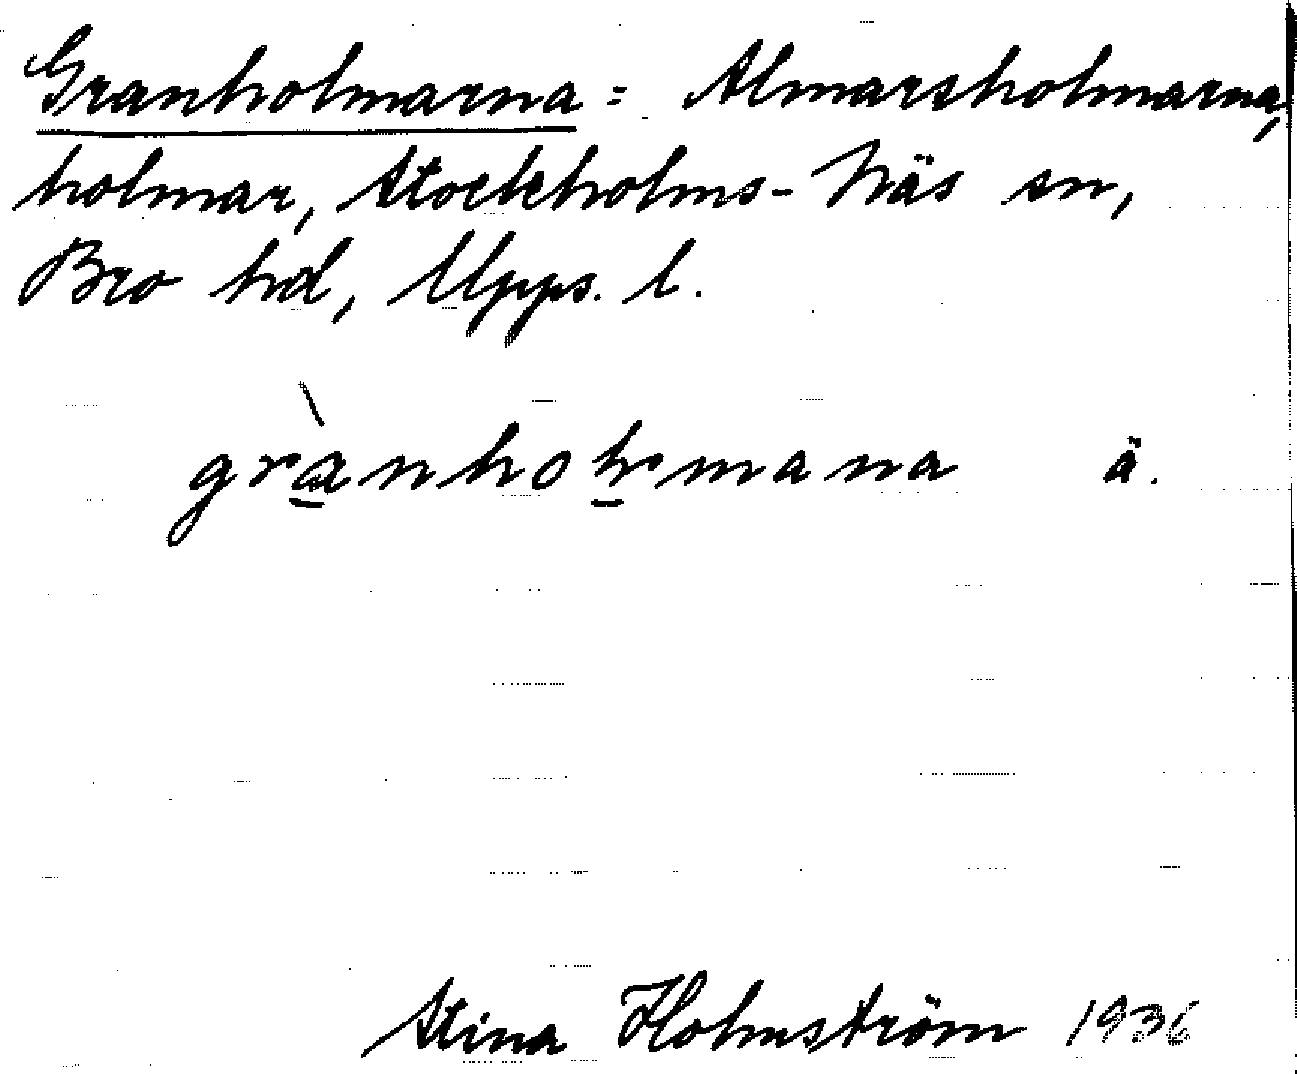 Granholmarna = Almarsholmarna,
holmar, Stockholms-Näs sn,
Bro hd, Upps. l.
grànholmana ä.
Stina Holmström 1936